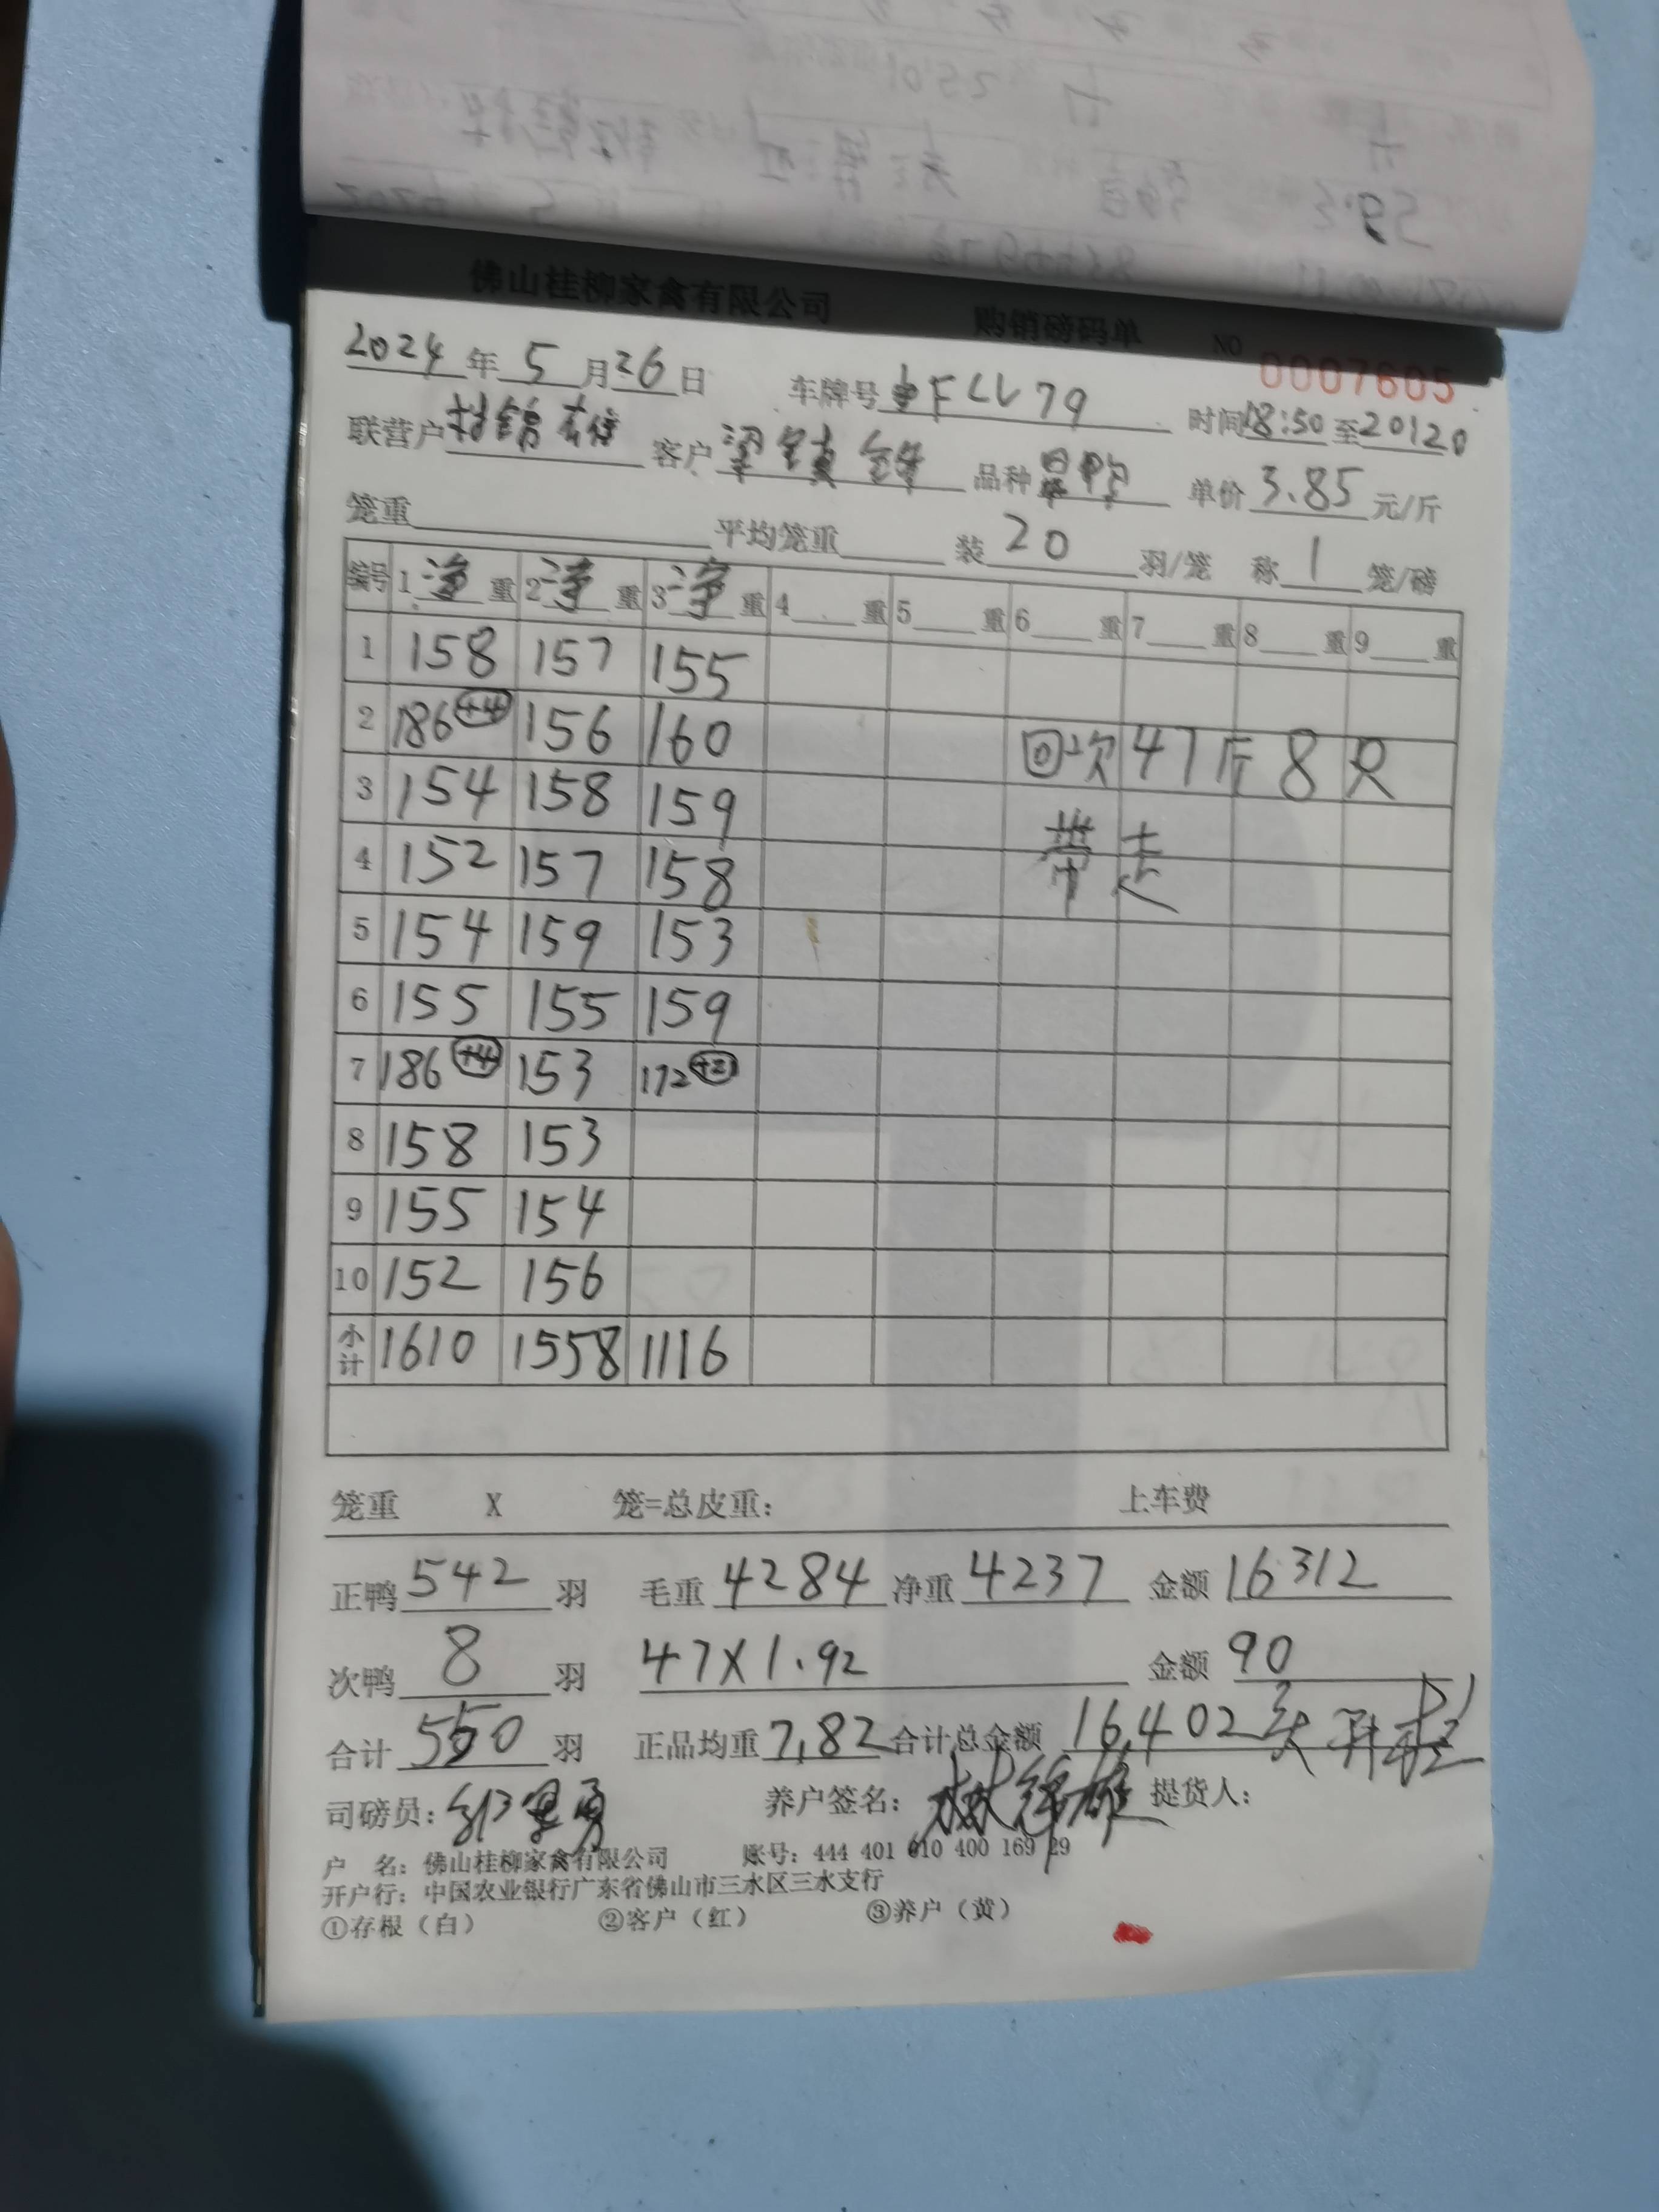 佛山桂柳家禽有限公司 购销磅码单 NO 0007605
2024年5月26日 车牌号 FLV79 时间18:50至20120
联营户 林锦雄 客户 梁镇锋 品种 鸭 单价3.85元/斤
笼重 平均笼重 装20羽/笼 称1笼/磅
编号 1净重 2净重 3净重 4 重 5 重 6 重 7 重 8 重 9 重
1 158 157 155
2 186+4 156 160 回次47斤8只
3 154 158 159
4 152 157 158 带走
5 154 159 153
6 155 155 159
7 186+4 153 172+2
8 158 153
9 155 154
10 152 156
小计 1610 1558 1116
笼重 X 笼=总皮重: 上车费
正鸭542羽 毛重4284 净重4237 金额16312
次鸭8羽 47X1.92 金额90
合计550羽 正品均重7,82 合计总金额16,402
司磅员: 养户签名:林锦雄 提货人:
户 名:佛山桂柳家禽有限公司 账号:444 401 010 400 169 29
开户行:中国农业银行广东省佛山市三水区三水支行
①存根(白) ②客户(红) ③养户(黄)